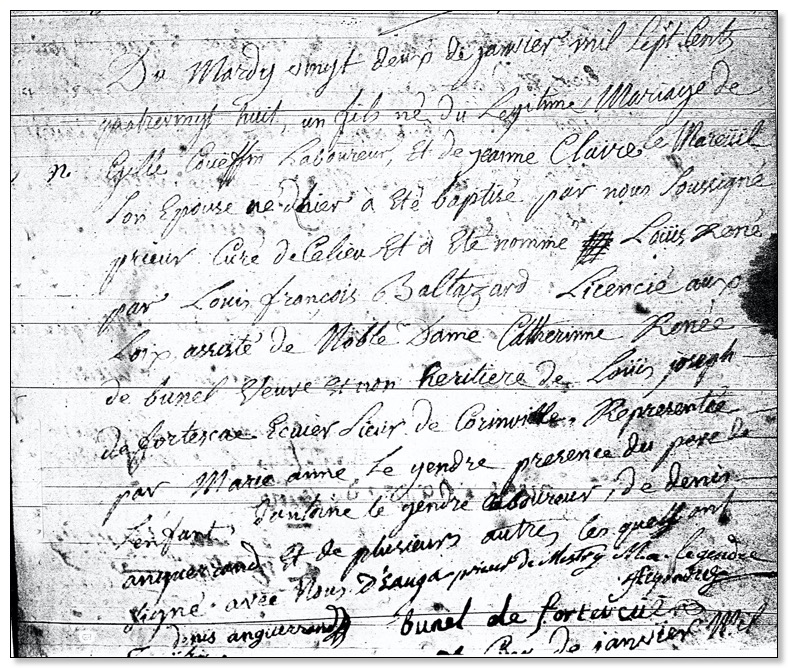 Du Mardy vingt deux de janvier mil Sept Cents
quatrevingt huit, un fils né du Legitime Mariage de
Gille Laboureur, et de jeanne Claire le Mareüil
n.
Son Epouse né dhier a Eté baptisé par nous Soussigné
prieur Curé de et a Eté nommé Loüis René
par Louis françois Baltazard Licencié aux
Loix assisté de Noble Dame Catherinne Renée
de bunel Veuve et non heritiere de Loüis joseph
de fortescue Ecuier Sieur de Representée
par Marie anne Le gendre presence du pere de
L'enfant, jantoine le gendre Laboureur, de denis
anquerrand et de plusieurs autres les quels ont
Signé avec Nous prieur de Mestry M.a. legendre
denis anguerrand bunel de fortescue
de janvier Mil